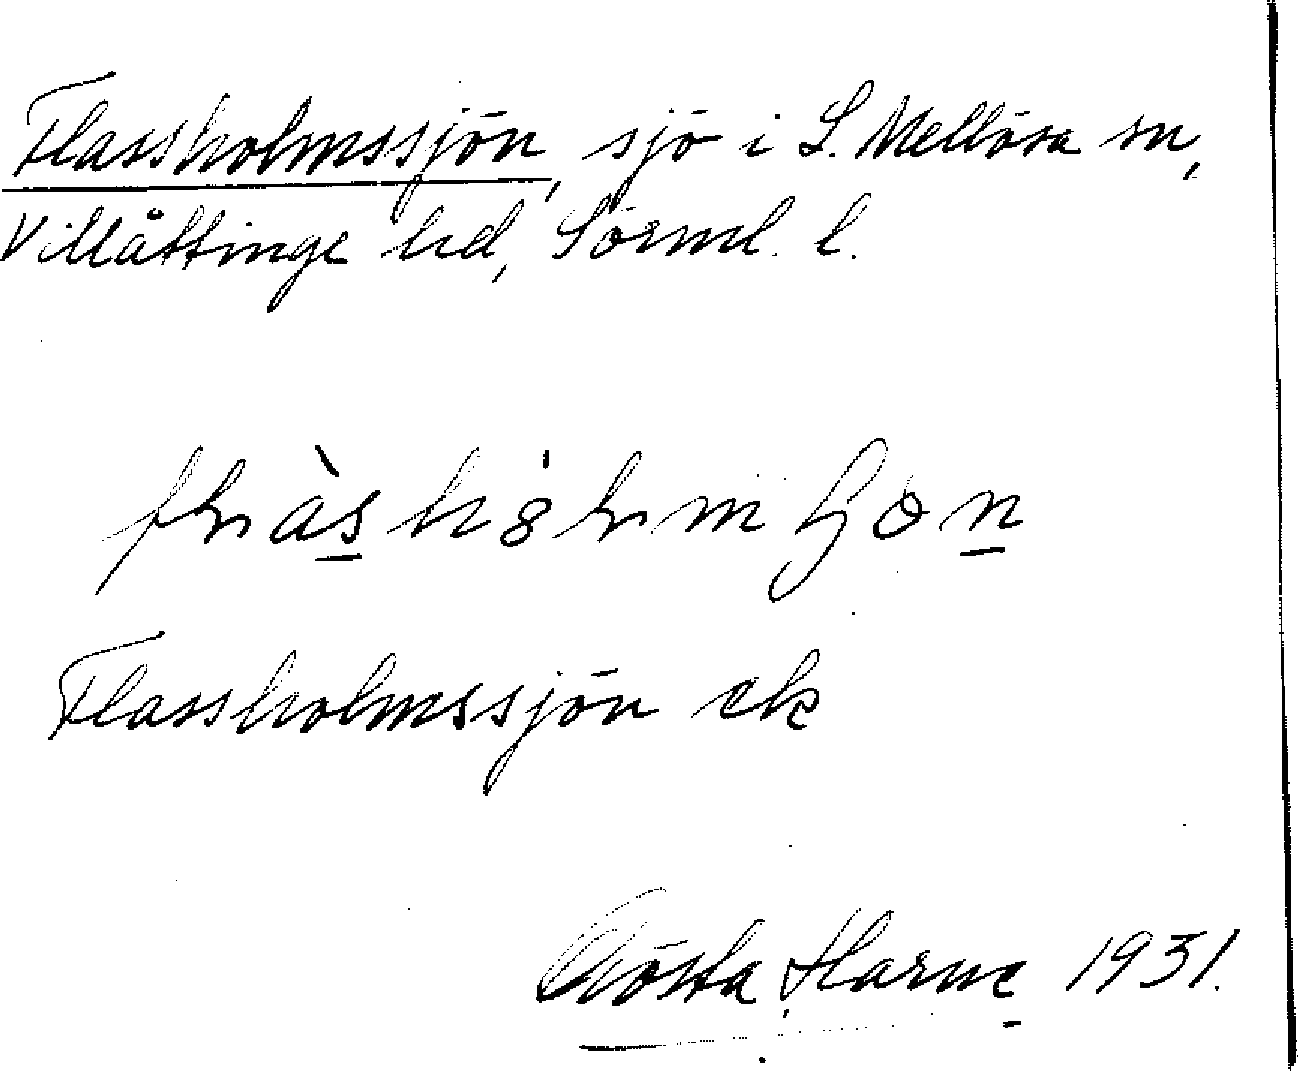 Flassholmssjön, sjö i L. Mellösa sn,
Villåttinge hd, Sörml. l.
Flassholmssjön ek
Gösta Harne 1931.